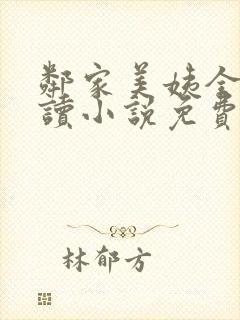 鄰家美姨全
讀小說免費
林郁方